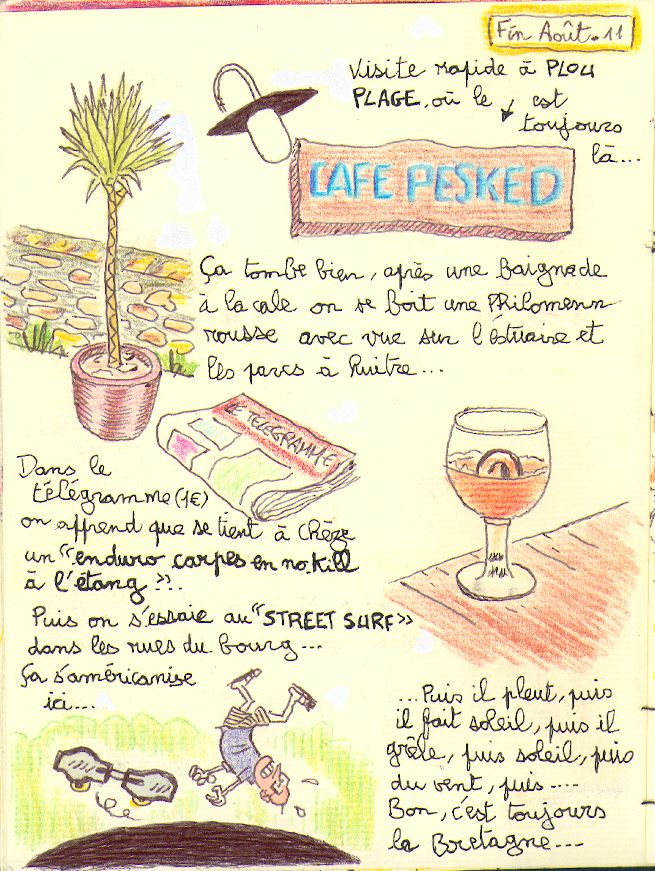 Fin Août. 11
Visite rapide à PLOU
PLAGE, où le est
toujours
là...
CAFE PESKED
Ça tombe bien, après une baignade
à la cale on se boit une Philomenn
rousse avec vue sur l'estuaire et
les parcs à huitre...
LE TELEGRAMME
Dans le
télégramme (1€)
on apprend que se tient à Chèze
un "enduro carpes en no-kill
à l'étang"...
Puis on s'essaie au "STREET SURF"
dans les rues du bourg...
Ça s'américanise
ici...
...Puis il pleut, puis
il fait soleil, puis il
grêle, puis soleil, puis
du vent, puis....
Bon, c'est toujours
la Bretagne...